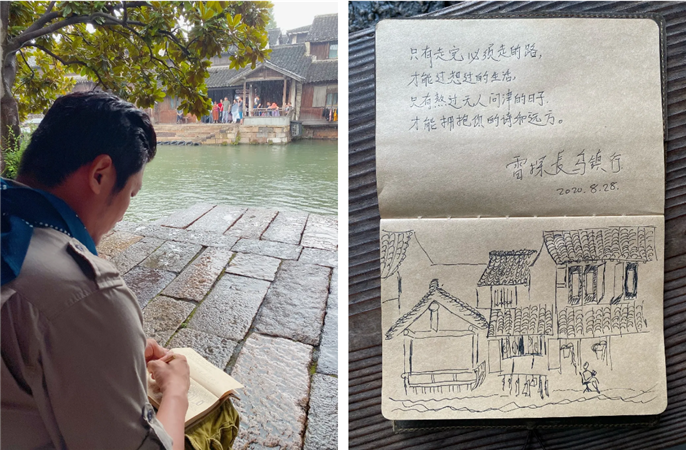 只有走完必须走的路,
才能过想过的生活,
只有熬过无人问津的日子.
才能拥抱你的诗和远方。
雷探长乌镇行
2020.8.28.